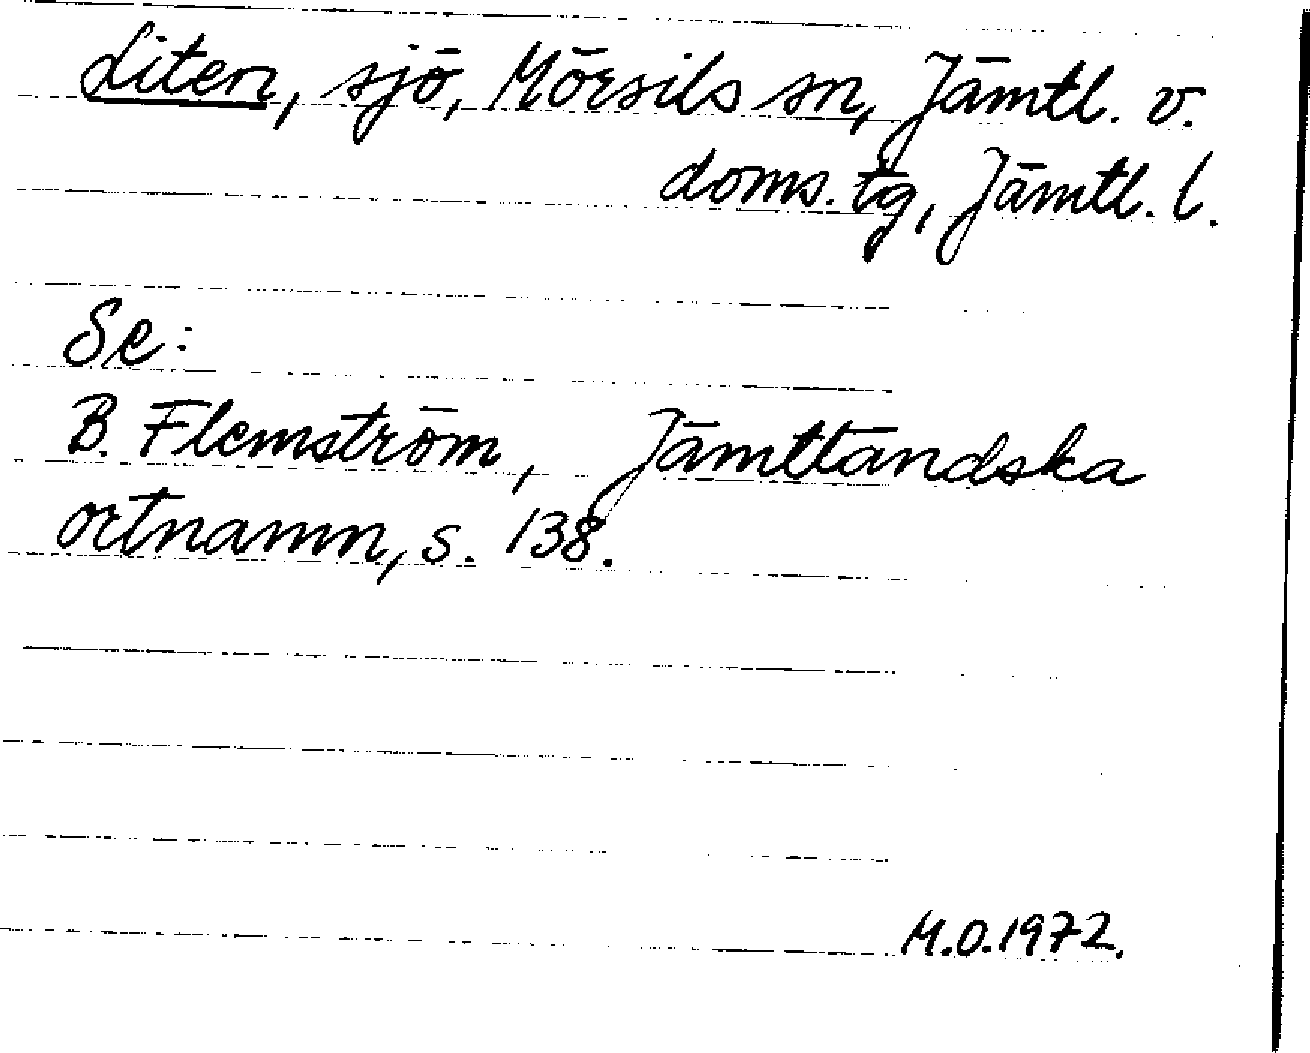 Liten, sjö, Mörsils sn, Jämtl. v.
doms. tg, Jämtl. l.
Se:
B. Flemström, Jämtländska
ortnamn, s. 138.
M.O. 1972.